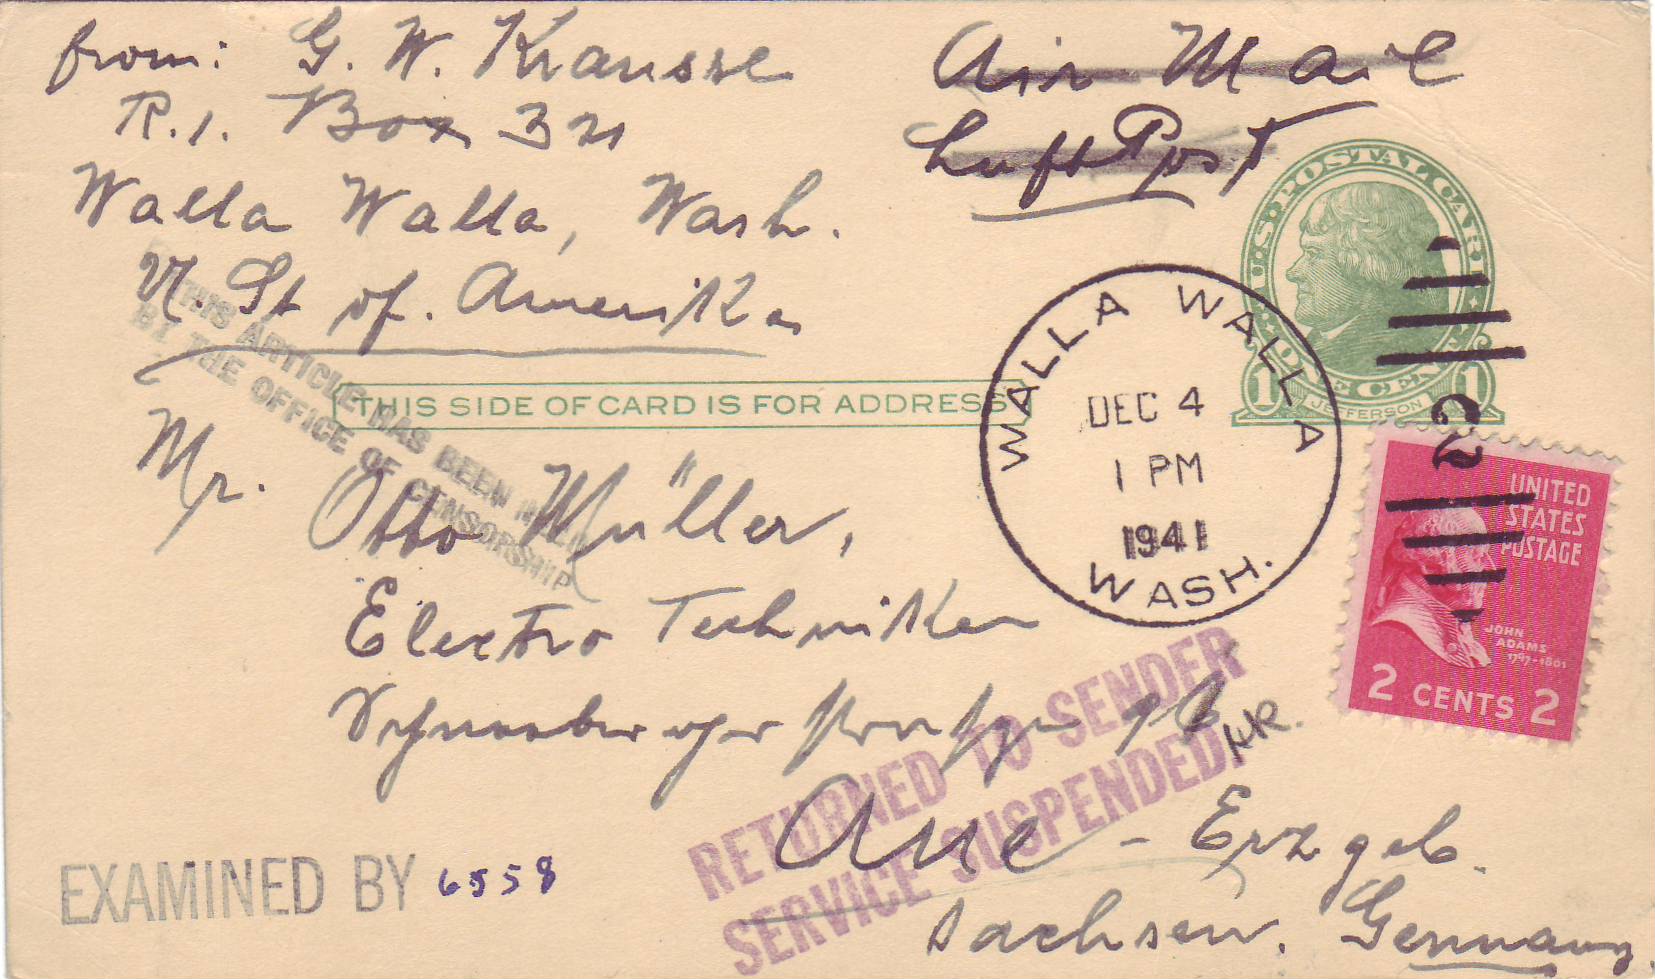 from: G. W. Krausse
R.1. Box 321
Walla Walla, Wash.
U. St of. Amerika
Air Mail
Luft Post
U·S·POSTAL CARD
ONE CENT
1 1
JEFFERSON
WALLA WALLA
DEC 4
1 PM
1941
WASH.
2
THIS ARTICLE HAS BEEN
BY THE OFFICE OF CENSORSHIP
THIS SIDE OF CARD IS FOR ADDRESS
Mr. Otto Müller,
Electro Techniker
UNITED
STATES
POSTAGE
JOHN
ADAMS
1797-1801
2 CENTS 2
RETURNED TO SENDER
SERVICE SUSPENDED.
Aue - Erzgeb.
Sachsen. Germany.
EXAMINED BY 6558